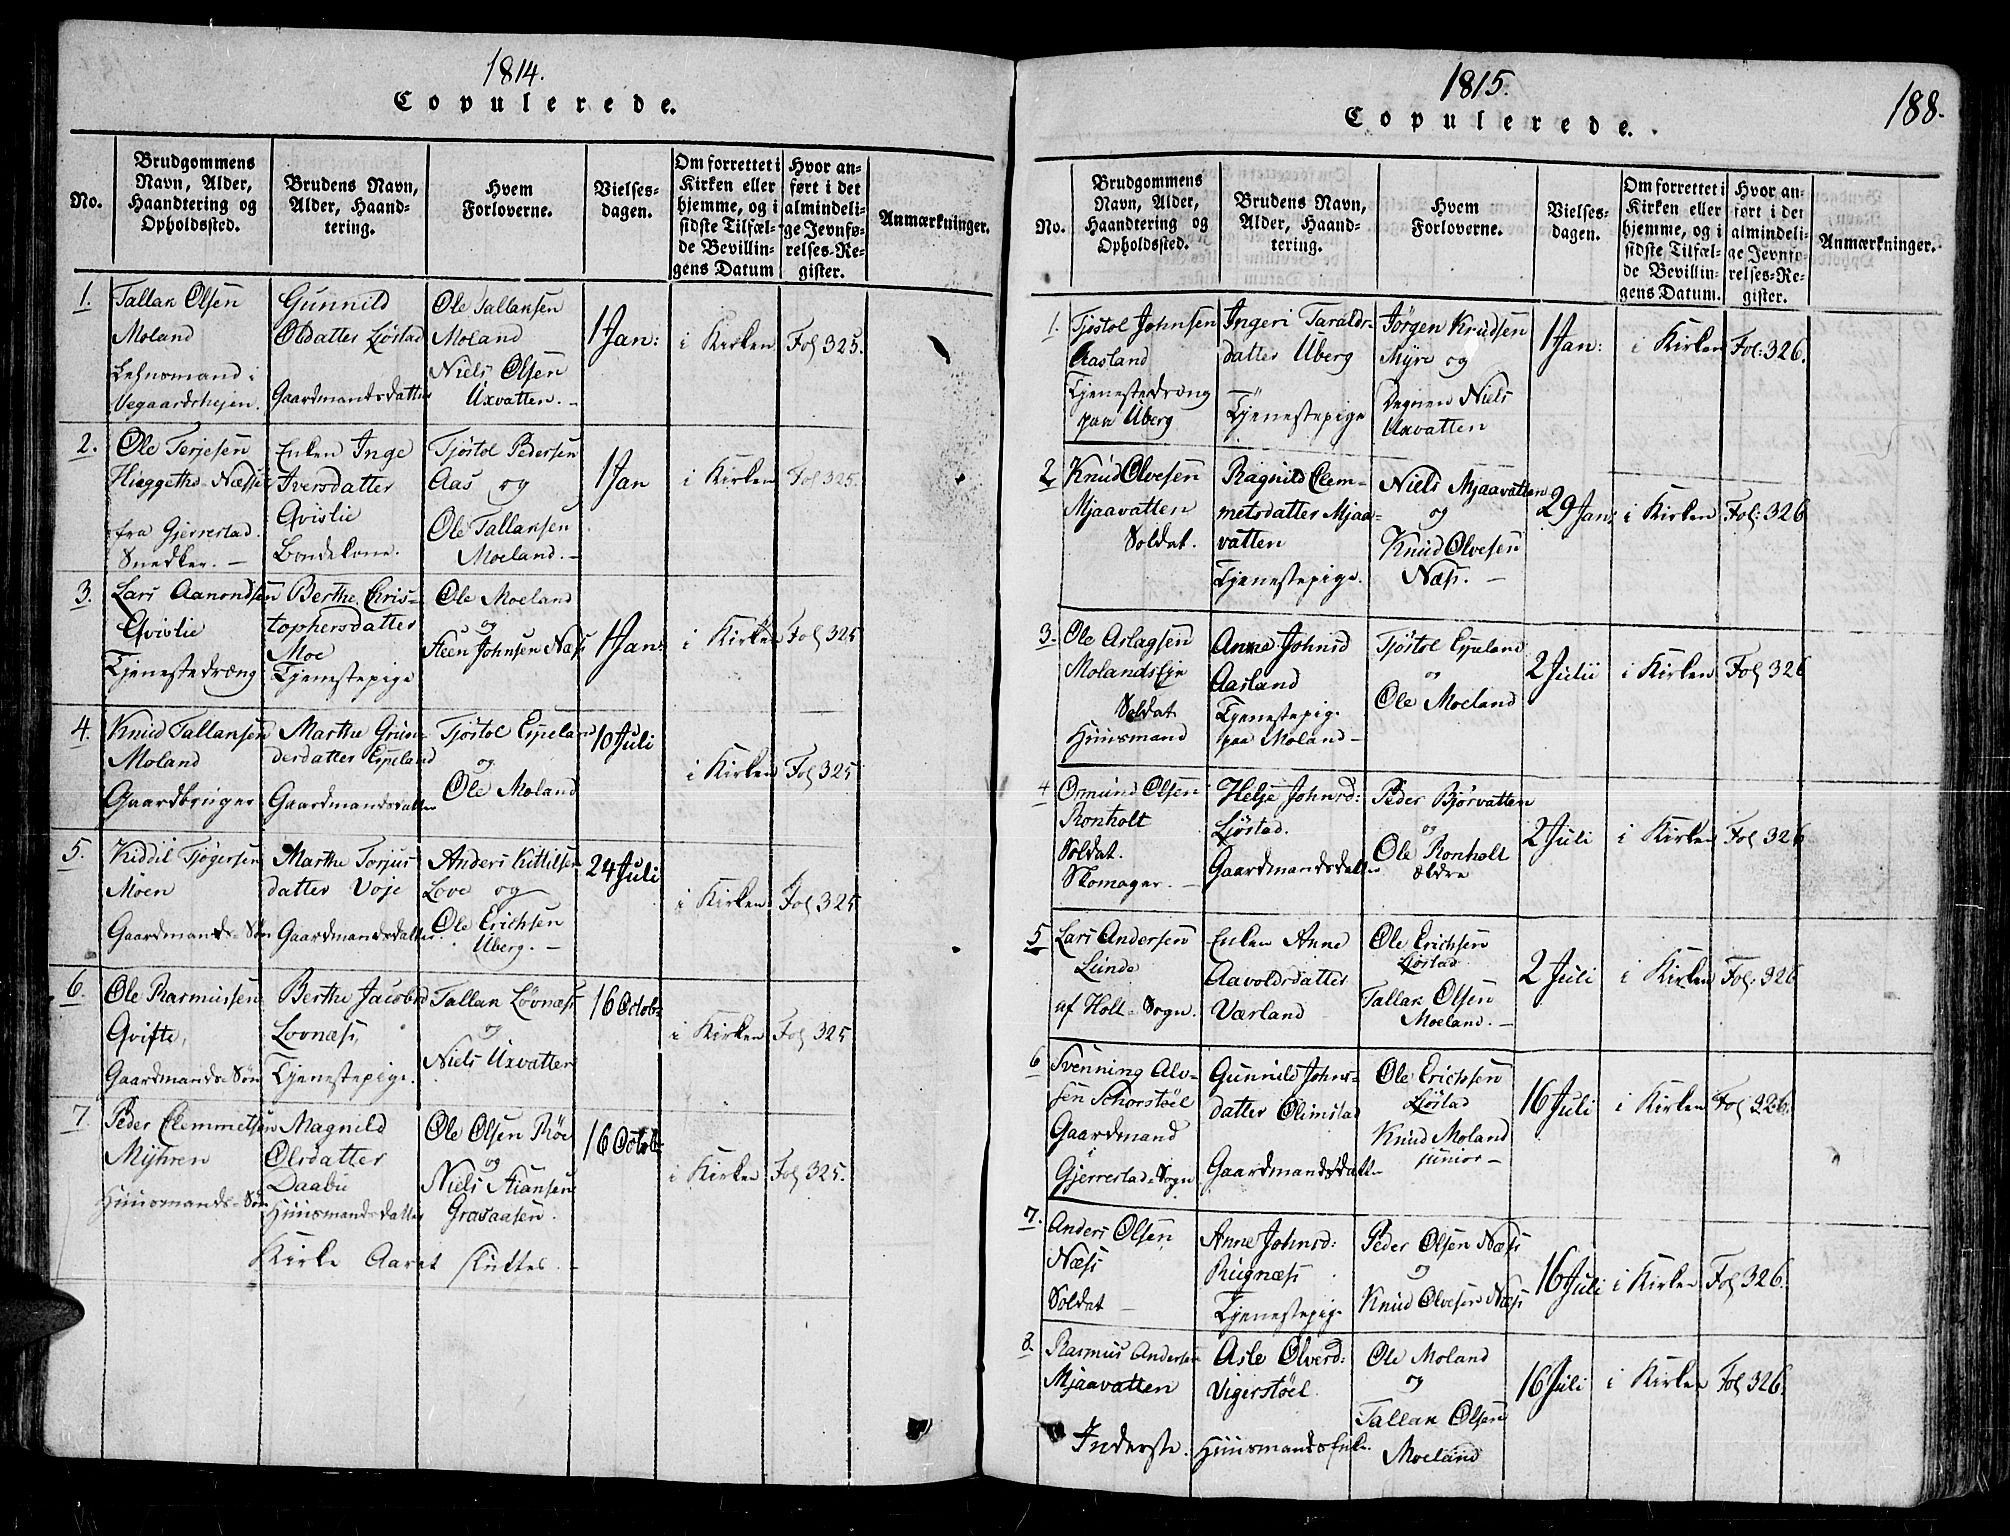 1814.
Copulerede.
No.
Brudgommens Navn, Alder, Haandtering og Opholdssted.
Brudens Navn, Alder, Haandtering.
Hvem Forloverne.
Vielsesdagen.
Om forrettet i Kirken eller hjemme, og i sidste Tilfælde Bevillingens Datum
Hvor anført i det almindelige Jevnførelses-Register.
Anmærkninger.
1.
Tallak Olsen
Moland
Lehnsmand i
Vegaardsheien.
Gunnild
Olsdatter Ljøstad
Gaardmandsdatter
Ole Tallaksen
Moland
Niels Olsen
Uxvatten.
1 Jan:
i Kirken
Fol 325.
2.
Ole Terjesen
fra Gjerrestad.
Snedker.
Enken Inge
Iversdatter
Qvistie
Bondekone.
Tjøstol Pedersen
Aas og
Ole Tallaksen
Moeland.
1 Jan
i Kirken
Fol 325.
3.
Lars Aanondsen
Qvistie
Tjenestedræng
Berthe Chris-
tophersdatter
Moe
Tjenestepige
Ole Moeland
og
Steen Johnsen Næss
1 Jan:
i Kirken
Fol 325
4.
Knud Tallaksen
Moland
Gaardbruger
Marthe Gun-
dersdatter Espeland
Gaardmandsdatter
Tjøstol Espeland
og
Ole Moland
10 Juli
i Kirken
Fol 325
5.
Kiddil Tjøgersen
Moen
Gaardmands-Søn
Marthe Torjus
datter Voje
Gaardmandsdatter
Anders Kittilsen
Love og
Ole Erichsen
Uberg.
24 Juli
i Kirken
Fol 325
6.
Ole Rasmussen
Qvifte,
Gaardmands-Søn
Berthe Jacobsd
Lovnæss,
Tjenestepige.
Tallak Løvnæss
og
Niels Uxvatten
16 Octob:
i Kirken
Fol 325
7.
Peder Clemmetsen
Myhren
Huusmands-Søn
Magnild
Olsdatter
Daabu
Huusmandsdatter
Ole Olsen Røe
og
Niels Stiansen
Gravaasen.
16 Octob:
i Kirken
Fol 325.
Kirke Aaret sluttes.
1815.
188.
Copulerede.
No.
Brudgommens Navn, Alder, Haandtering og Opholdssted.
Brudens Navn, Alder, Haandtering.
Hvem Forloverne.
Vielsesdagen.
Om forrettet i Kirken eller hjemme, og i sidste Tilfælde Bevillingens Datum.
Hvor anført i det almindelige Jevnførelses-Register.
Anmærkninger.
1.
Tjøstol Johnsen
Aasland
Tjenestedræng
paa Uberg
Ingeri Tarald-
datter Uberg
Tjenestepige
Jørgen Knudsen
Myre og
Degnen Niels
Uxvatten
1 Jan:
i Kirken
Fol: 326.
2
Knud Olvesen
Mjaavatten
Soldat.
Ragnild Clem-
metsdatter Mjaa-
vatten
Tjenestepige.
Niels Mjaavatten
og
Knud Olvesen
Næss.
29 Jan:
i Kirken
Fol: 326
3.
Ole Aslagsen
Molandseje
Soldat
Huusmand
Anne Johnsd
Aasland
Tjenestepige
paa Moland
Tjøstol Espeland
og
Ole Moeland
2 Julii
i Kirken
Fol 326
4
Ormund Olsen
Ronholt
Soldat.
Skomager.
Helje Johnsd:
Ljøstad.
Gaardmandsdatter
Peder Bjorvatten
og
Ole Ronholt
ældre
2 Juli
i Kirken
Fol 326
5
Lars Andersen
Lunde
af Holt-Sogn.
Enken Anne
Aavoldsdatter
Værland
Ole Erichsen
Ljøstad
Tallak Olsen
Moeland.
2 Juli
i Kirken
Fol: 326
6
Svenning Alv-
sen Schorstøel
Gaardmand
Gjerrestad-Sogn
Gunnild Johns-
datter Olimstad
Gaardmandsdatter
Ole Erichsen
Ljøstad
Knud Moland
junior
16 Juli
i Kirken
Fol 326.
7.
Anders Olsen
Næss
Soldat
Anne Johnsd:
Rugnæss
Tjenestepige
Peder Olsen Næss
og
Knud Olvesen Næss
16 Juli
i Kirken
Fol 326.
8.
Rasmus Andersen
Mjaavatten
Inderste.
Asle Olversd:
Vigerstøel.
Huusmandsenke.
Ole Moland
og
Tallak Olsen
Moeland
16 Juli
i Kirken
Fol 326.